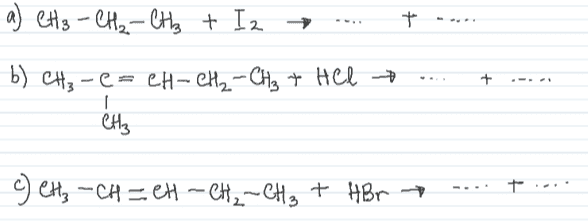 a) CH₃ - CH₂ - CH₃ + I₂ → .... + .....
b) CH₃ - C = CH - CH₂ - CH₃ + HCl → .... + .....
|
CH₃
c) CH₃ - CH = CH - CH₂ - CH₃ + HBr → .... + ....